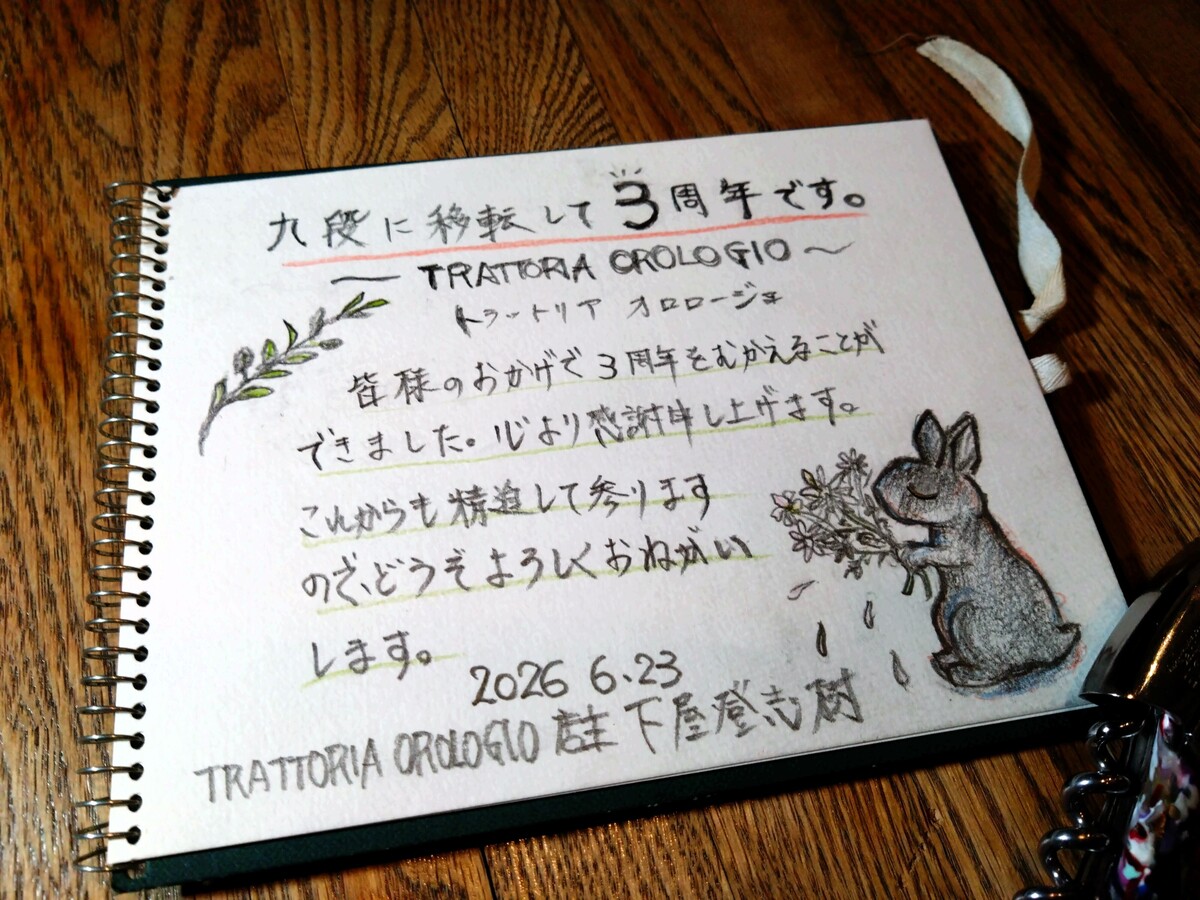 九段に移転して3周年です。
〜 TRATTORIA OROLOGIO 〜
トラットリア オロロージョ
皆様のおかげで3周年をむかえることが
できました。心より感謝申し上げます。
これからも精進して参ります
ので、どうぞよろしくおねがい
します。
2026 6.23
TRATTORIA OROLOGIO 店主 下屋登志樹